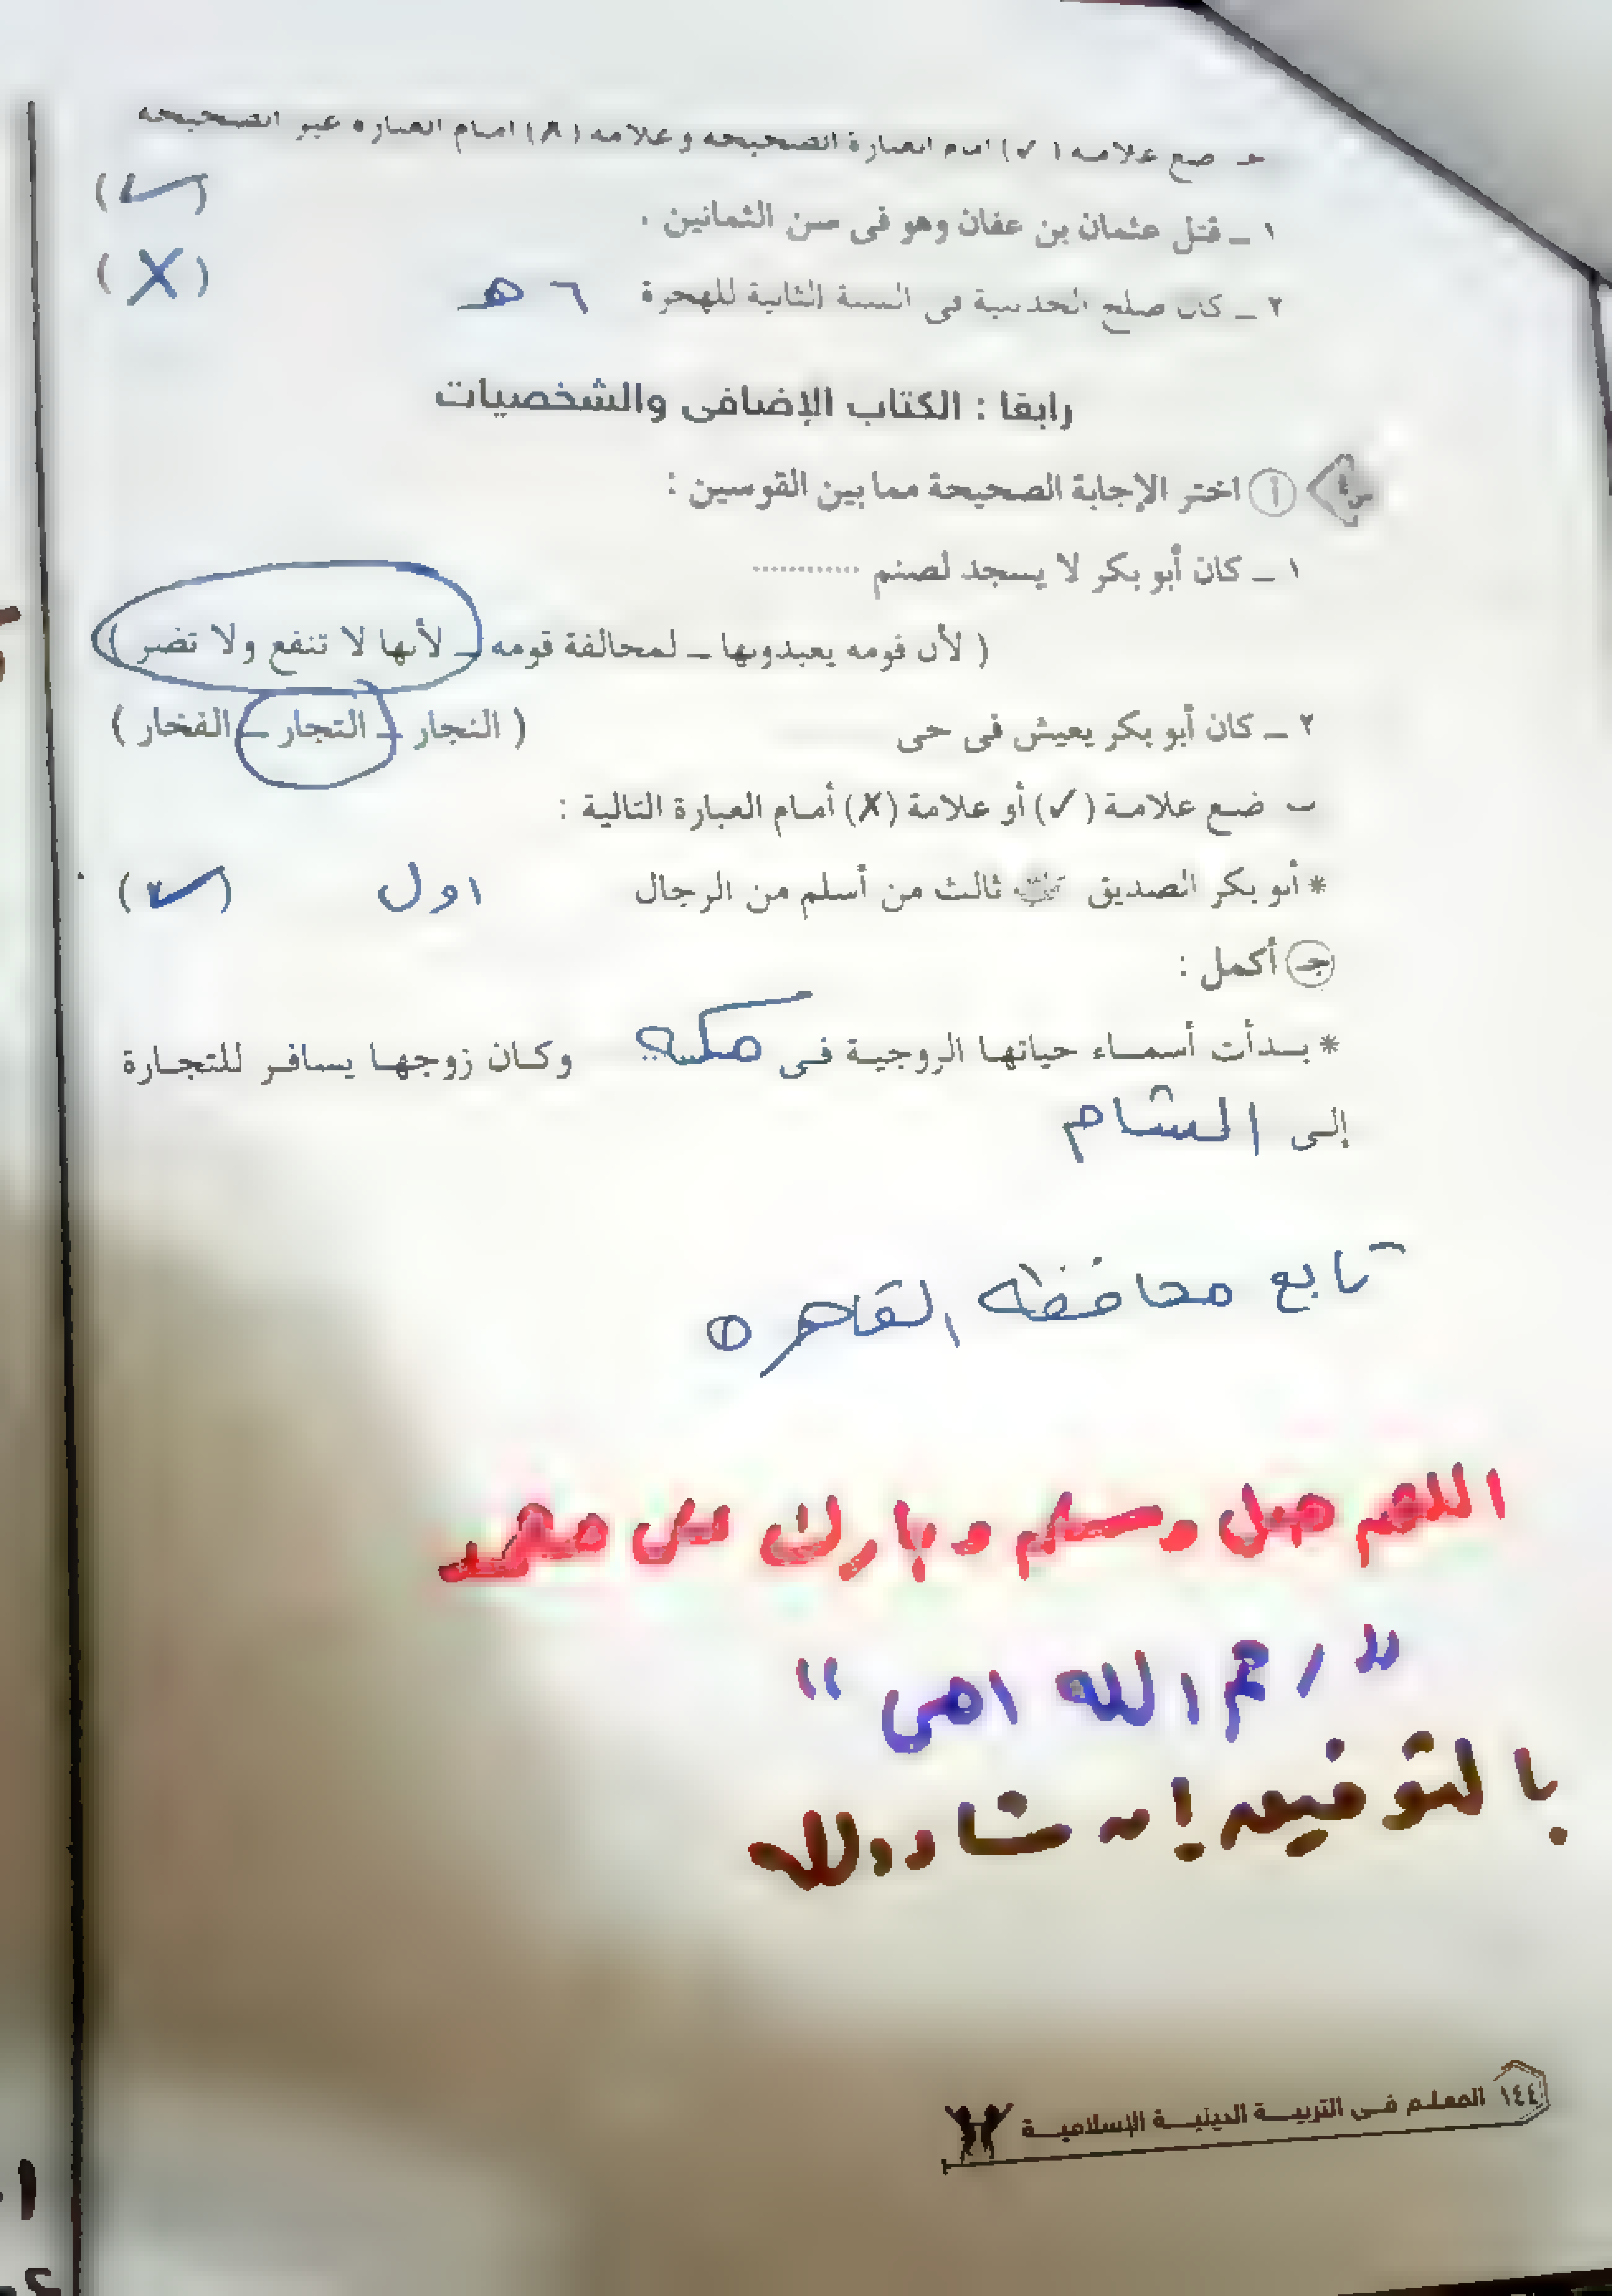 ـ ضع علامة (✓) امام العبارة الصحيحة وعلامة (✗) امام العبارة غير الصحيحة
١ ـ قتل عثمان بن عفان وهو فى سن الثمانين . (✓)
٢ ـ كان صلح الحديبية فى السنة الثانية للهجرة ٦ هـ (X)
رابعًا : الكتاب الإضافى والشخصيات
س٤ أ اختر الإجابة الصحيحة مما بين القوسين :
١ ـ كان أبو بكر لا يسجد لصنم ............
( لأن قومه يعبدونها ـ لمخالفة قومه ـ لأنها لا تنفع ولا تضر )
٢ ـ كان أبو بكر يعيش فى حى ( النجار ـ التجار ـ الفخار )
ب ضع علامة (✓) أو علامة (✗) أمام العبارة التالية :
* أبو بكر الصديق ثالث من أسلم من الرجال اول (✓)
جـ أكمل :
* بـدأت أسمـاء حياتهـا الزوجيـة فـى مكه وكـان زوجهـا يسافـر للتجـارة
إلى الشام
تابع محافظه القاهره ①
اللهم صل وسلم وبارك على محمد
"رحم الله امى"
بالتوفيق إن شاء الله
١٤٤ المعلم فى التربيـة الدينيـة الإسلاميـة